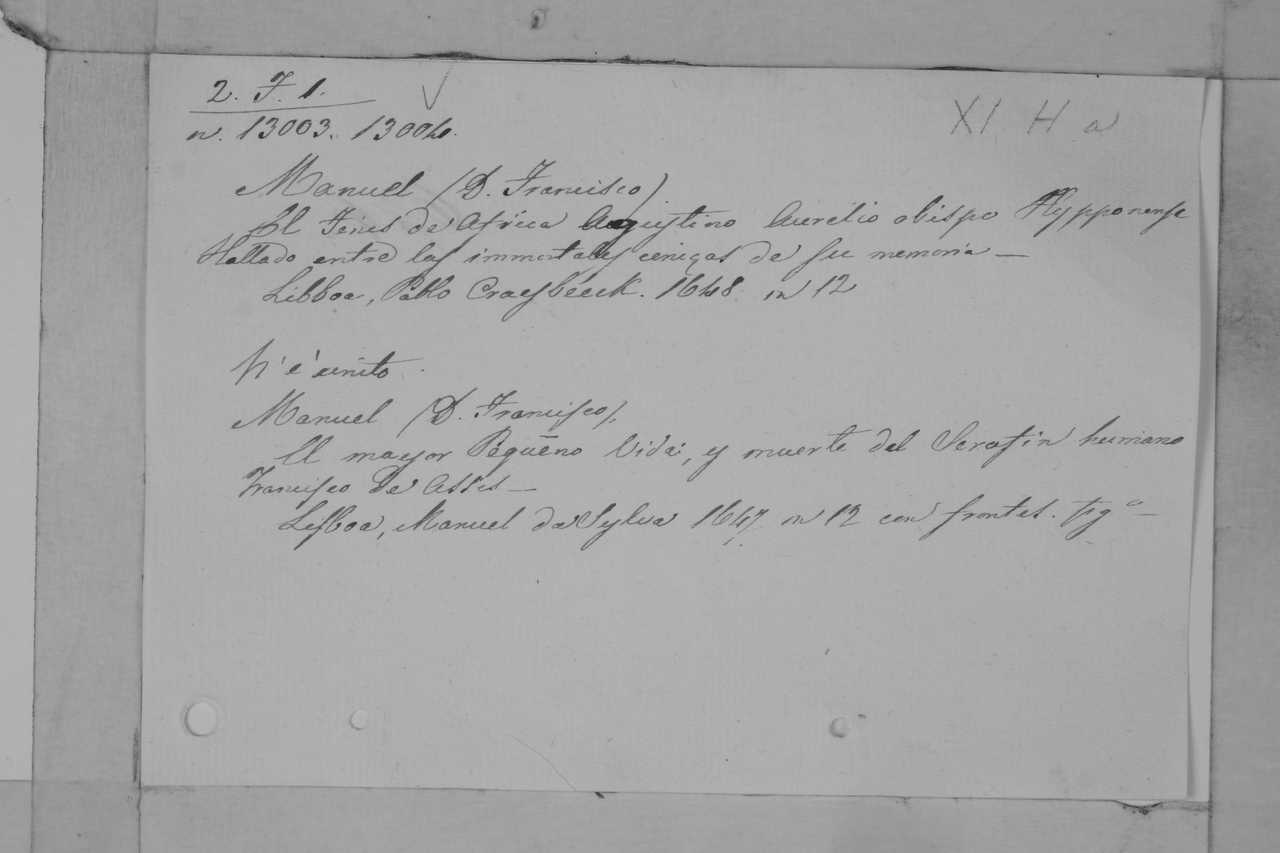 2. F. 1.
n. 13003. 13004.
XI H a
Manuel (D. Francisco)
El Fenis de Africa Augustino Aurelio obispo Hypponense
Hallado entre las immortales cenizas de su memoria —
Lisboa, Pablo Craesbeeck. 1648 in 12
Vi è unito.
Manuel (D. Francisco).
El mayor Pequeño Vida, y muerte del Serafin humano
Francisco de Assis —
Lisboa, Manuel da Sylva 1647. in 12 con frontes. fig.º —